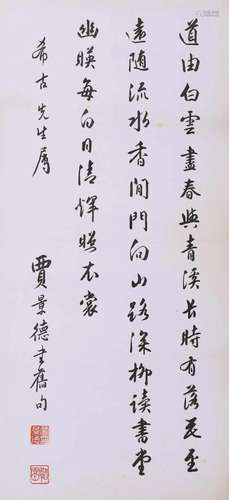 道由白雲盡春與青溪長時有落花至
遠隨流水香閒門向山路深柳读書堂
幽暎每白日清輝照衣裳
希古先生屬
賈景德書舊句